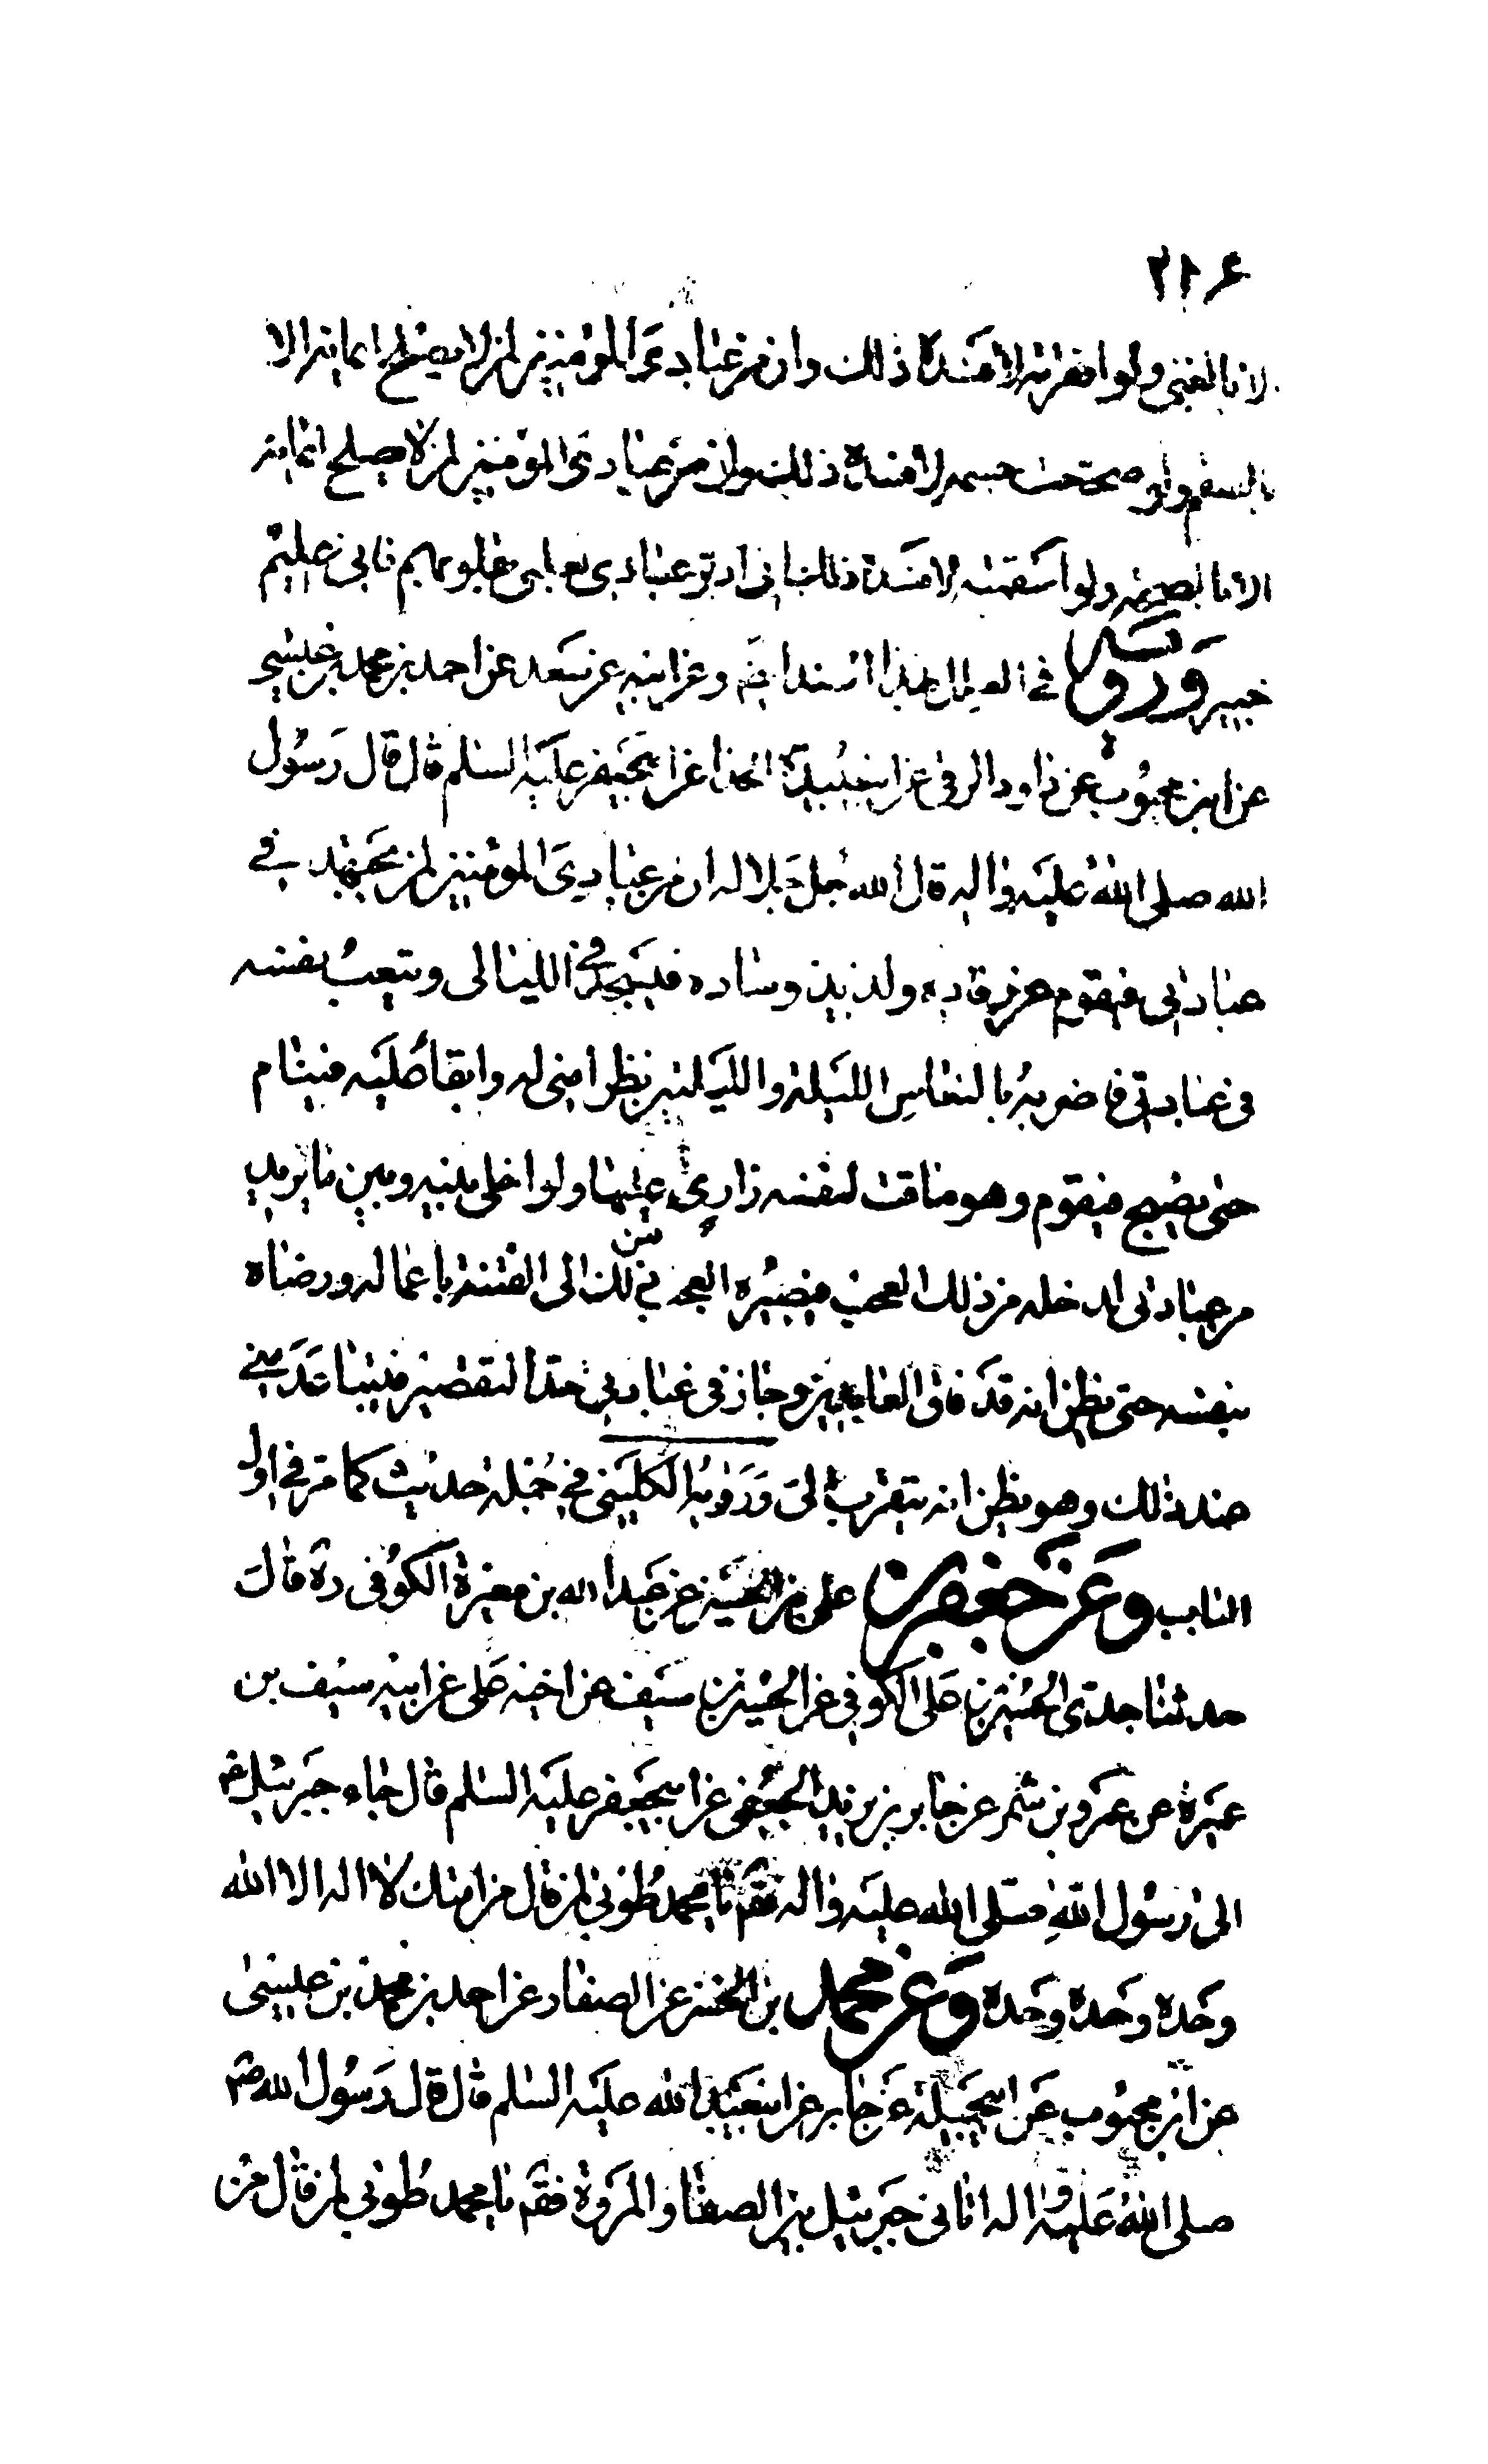 ٢١۶
الا بالغنی ولو افقرته لافسده ذلك وان من عبادی المؤمنین لمن لا یصلح ایمانه الا
بالسقم ولو صححت جسمه لافسده ذلك وان من عبادی المؤمنین لمن لا یصلح ایمانه
الا بالصحة ولو اسقمته لافسده ذلك انی ادبر عبادی بعلمی بقلوبهم فانی علیم
خبیر ورواه فی العلل بهذا السند وعن ابیه عن سعد عن احمد بن محمد بن عیسی
عن ابن محبوب عن داود الرقی عن ابی عبیدة الحذا عن ابی جعفر علیه السلم قال قال رسول
الله صلی الله علیه واله قال الله جل جلاله ان من عبادی المؤمنین لمن یجتهد فی
عبادتی فیقوم من رقاده ولذیذ وساده فیتهجد فی اللیالی ویتعب نفسه
فی عبادتی فاضربه بالنعاس اللیلة واللیلتین نظرا منی له وابقاء علیه فینام
حتی یصبح فیقوم وهو ماقت لنفسه زاری علیها ولو اخلی بینه وبین ما یرید
من عبادتی لدخله من ذلك العجب فیصیره العجب من ذلك الی الفتنة باعماله ورضاه
بنفسه حتی یظن انه قد فاق العابدین وجاز فی عبادتی حد التقصیر فیتباعد منی
عند ذلك وهو یظن انه یتقرب الی ورواه الکلینی فی جملة حدیث کما مر فی اول
الباب وعن جعفر بن علی بن الحسین عن عبدا لله بن مغیرة الکوفی ره قال
حدثنا جدی الحسن بن علی الکوفی عن الحسین بن سیف عن اخیه علی عن ابیه سیف بن
عمیرة عن عمرو بن شمر عن جابر بن یزید الجعفی عن ابی جعفر علیه السلم قال جاء جبرئیل ع
الی رسول الله صلی الله علیه واله فقم یا محمد طوبی لمن قال من امتك لا اله الا الله
وحده وحده وحده وعن محمد بن الحسن عن الصفار عن احمد بن محمد بن عیسی
عن ابن محبوب عن ابی جمیلة عن جابر عن ابی عبد الله علیه السلم قال قال رسول الله صم
صلی الله علیه واله اتانی جبرئیل بین الصفا والمروة فقم یا محمد طوبی لمن قال من